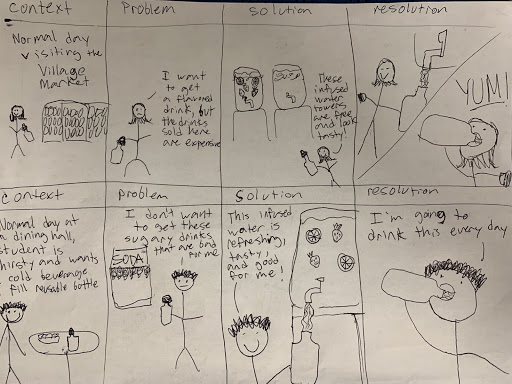 Context
Normal day
visiting the
Village
Market
Problem
I want
to get
a flavored
drink, but
the drinks
sold here
are expensive
Solution
These
infused
water
towers
are free
and look
tasty!
resolution
YUM!
Context
Normal day at
a dining hall,
student is
thirsty and wants
cold beverage
fill reusable bottle
problem
I don't want
to get these
sugary drinks
that are bad
for me
SODA
Solution
This infused
water is
refreshing,
tasty,
and good
for me!
resolution
I'm going to
drink this every day